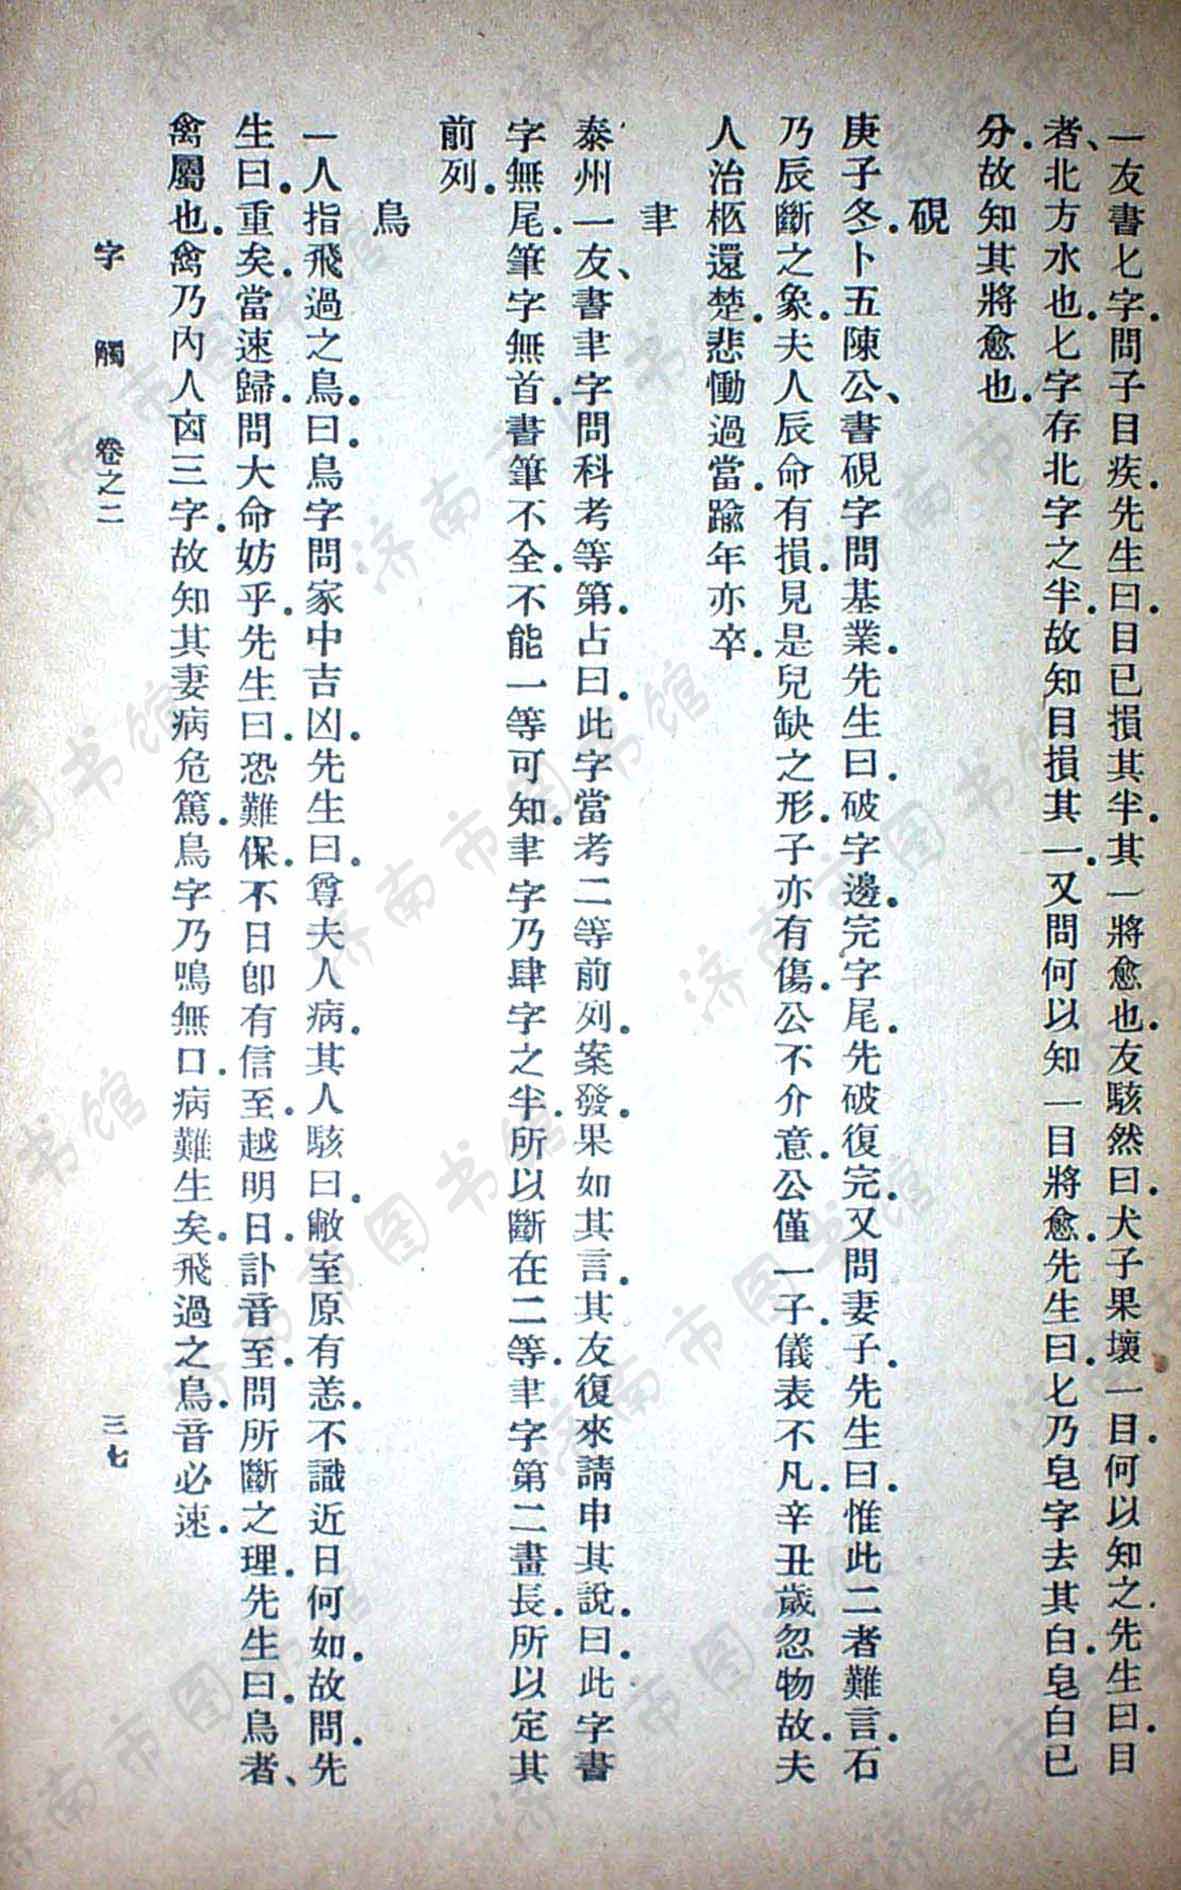 一友書匕字。問子目疾。先生曰。目已損其半。其一將愈也。友駭然曰。犬子果壞一目。何以知之。先生曰。目
者、北方水也。匕字存北字之半。故知目損其一。又問何以知一目將愈。先生曰。匕乃皂字去其白。皂白已
分。故知其將愈也。
硯
庚子冬。卜五陳公、書硯字問基業。先生曰。破字邊。完字尾。先破復完。又問妻子。先生曰。惟此二者難言。石
乃辰斷之象。夫人辰命有損。見是兒缺之形。子亦有傷。公不介意。公僅一子。儀表不凡。辛丑歲忽物故。夫
人治柩還楚。悲慟過當。踰年亦卒。
聿
泰州一友、書聿字問科考等第。占曰。此字當考二等前列。案發。果如其言。其友復來請申其說。曰。此字書
字無尾。筆字無首。書筆不全。不能一等可知。聿字乃肆字之半。所以斷在二等。聿字第二畫長。所以定其
前列。
鳥
一人指飛過之鳥。曰。鳥字問家中吉凶。先生曰。尊夫人病。其人駭曰。敝室原有恙。不識近日何如。故問。先
生曰。重矣。當速歸。問大命妨乎。先生曰。恐難保。不日卽有信至。越明日。訃音至。問所斷之理。先生曰。鳥者、
禽屬也。禽乃內人凶三字。故知其妻病危篤。鳥字乃鳴無口。病難生矣。飛過之鳥。音必速。
字觸　卷之二　三七
济南市图书馆